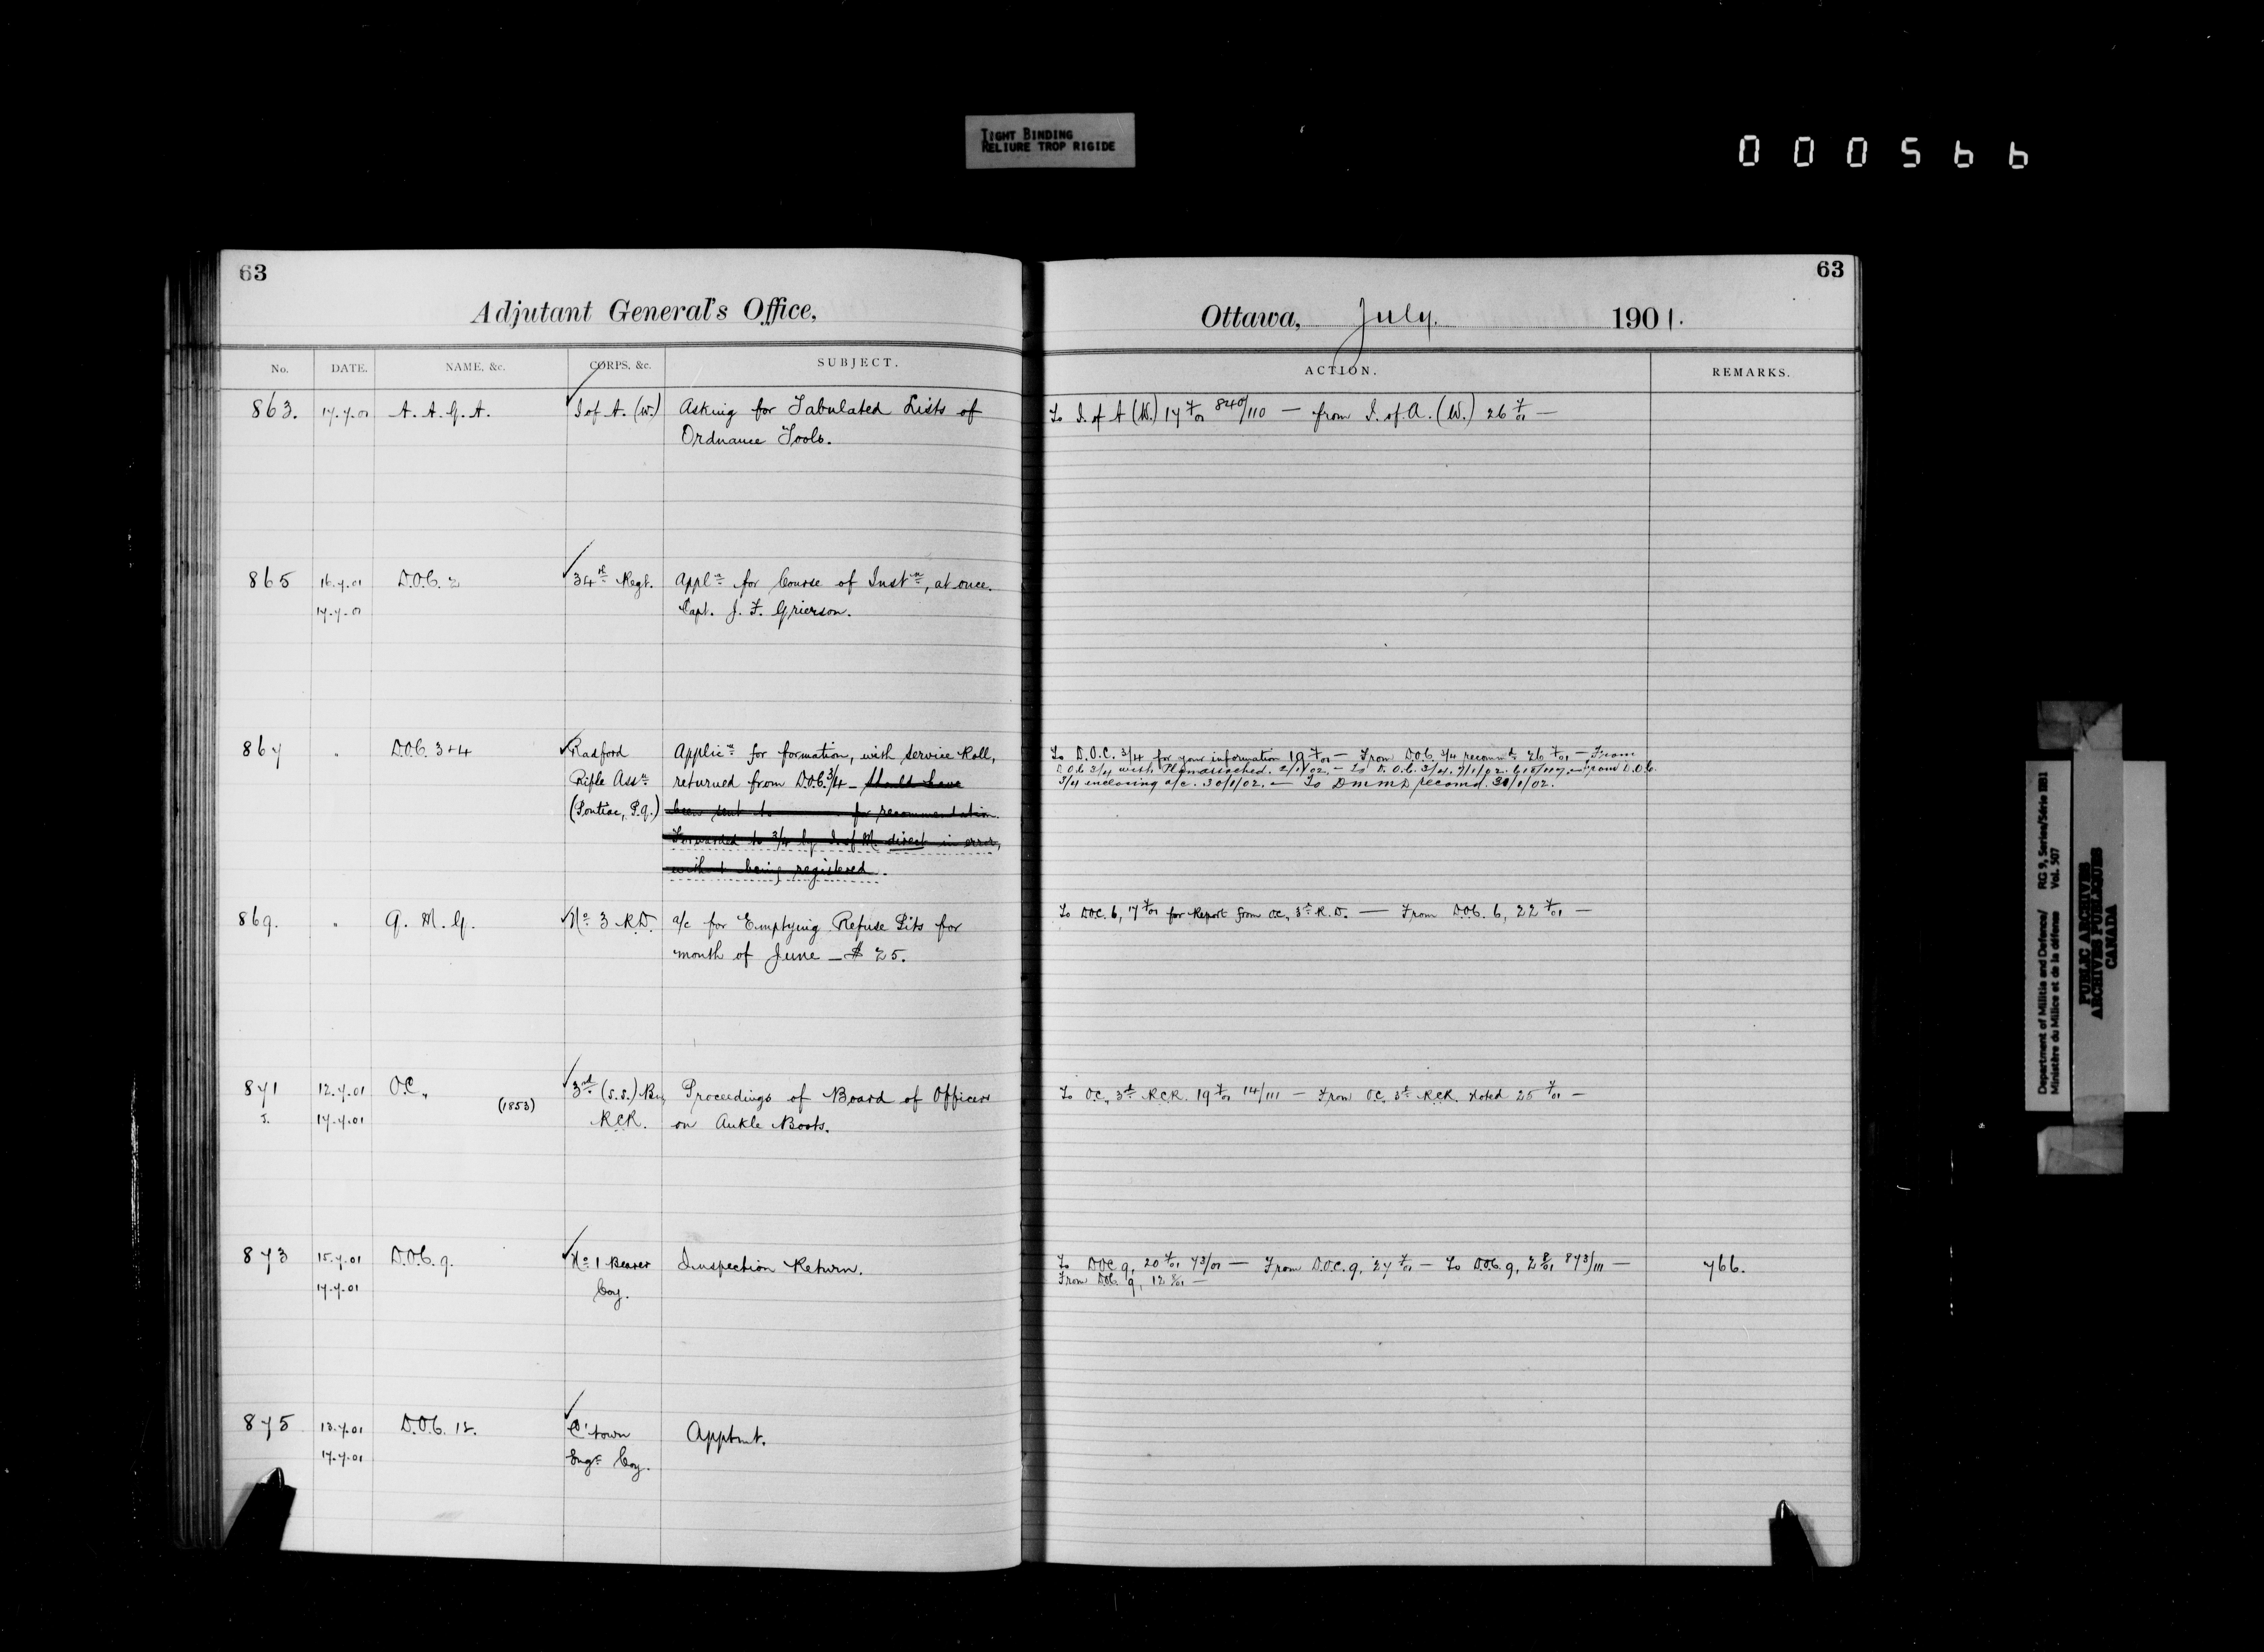 TIGHT BINDING
RELIURE TROP RIGIDE
000566
63
Adjutant General's Office,
No. DATE. NAME, &c. CORPS, &c. SUBJECT.
863. 17.7.01 A. A. G. A. I of A. (W.) Asking for Tabulated Lists of
Ordnance Tools.
865 16.7.01 D.O.C. 2 34th Regt. Appln for Course of Instn, at once.
17.7.01 Capt. J. F. Grierson.
867 " D.O.C. 3+4 Radford Applicn for formation, with Service Roll,
Rifle Assn returned from D.O.C. 3/4 - should have
(Pontiac, P.Q.) been sent to for recommendation.
Forwarded to 3/4 by I. of M. direct in error,
without being registered.
869. " Q. M. G. No 3 R.D. a/c for Emptying Refuse Pits for
month of June - $ 25.
871 12.7.01 O.C., (1853) 3rd (S.S.) Bn, Proceedings of Board of Officers
17.7.01 R.C.R. on Ankle Boots.
873 15.7.01 D.O.C. 9. No 1 Bearer Inspection Return.
17.7.01 Coy.
875 13.7.01 D.O.C. 12. C'town Apptmt.
17.7.01 Engr Coy.
63
Ottawa, July. 1901.
ACTION. REMARKS.
To I. of A (W.) 17 7/01 840/110 — from I. of. A. (W.) 26 7/01 —
To D.O.C. 3/4 for your information 19 7/01 — From D.O.C. 3/4 recommd 26 7/01 — From
D.O.C 3/4 with Plan attached. 2/1/02. — To D.O.C. 3/4. 7/1/02. — From D.O.C.
3/4 inclosing a/c. 30/1/02. — To D M M D recomd. 30/1/02.
To DOC. 6, 17 7/01 for Report from OC, 3rd R.D. — From D.O.C. 6, 22 7/01 —
To OC, 3rd RCR. 19 7/01 14/111 — From OC. 3rd RCR. Noted 25 7/01 —
To DOC 9, 20 7/01 73/01 — From D.O.C. 9, 27 7/01 — To D.O.C. 9, 2 8/01 873/111 — 766.
From DOC. 9, 12 8/01 —
Department of Militia and Defence/ RG 9, Series/Série IIB1
Ministère du Milice et de la défense Vol. 507
PUBLIC ARCHIVES
ARCHIVES PUBLIQUES
CANADA